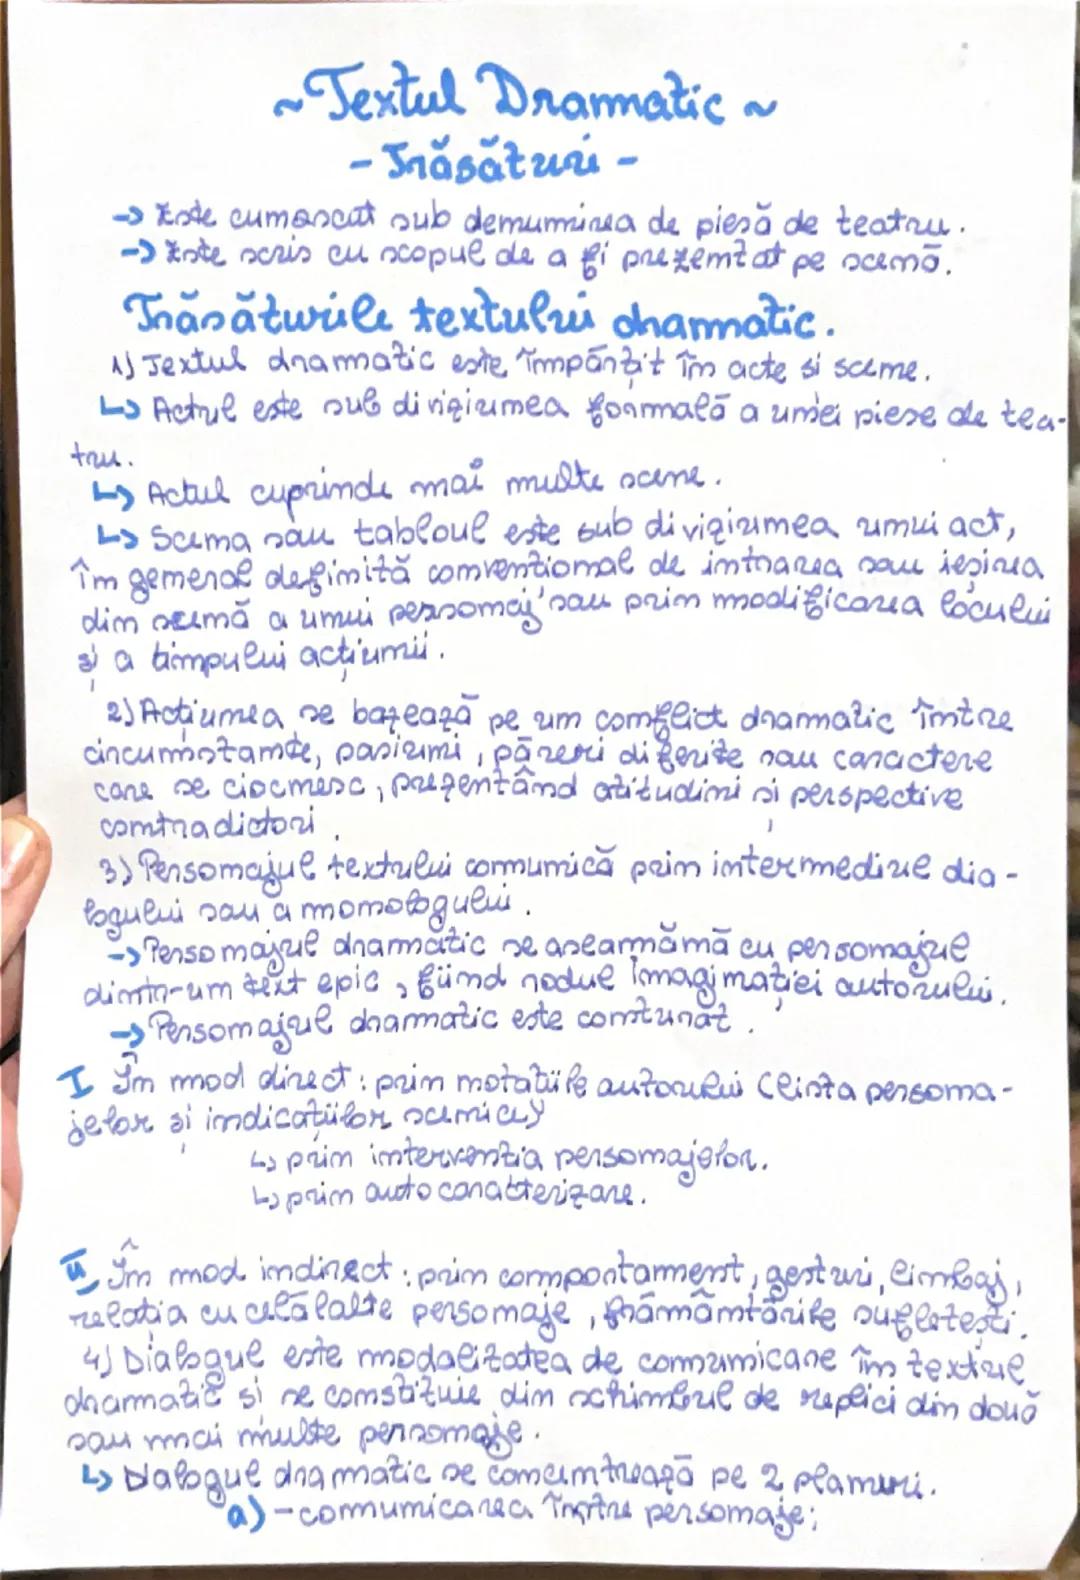 ~Textul Dramatic~
- Trăsături -
-> Este cunoscut sub denumirea de piesă de teatru.
-> Este scris cu scopul de a fi prezentat pe scenă.
Trăsăturile textului dramatic.
1) Textul dramatic este împărțit în acte si scene.
↳ Actul este sub diviziunea formală a unei piese de tea-
tru.
↳ Actul cuprinde mai multe scene.
↳ Scena sau tabloul este sub diviziunea unui act,
în general definită convențional de intrarea sau ieșirea
din scenă a unui personaj sau prin modificarea locului
și a timpului acțiunii.
2) Acțiunea se bazează pe un conflict dramatic între
circumstanțe, pasiuni, păreri diferite sau caractere
care se ciocnesc, prezentând atitudini și perspective
contradictori.
3) Personajul textului comunică prin intermediul dia-
logului sau a monologului.
-> Personajul dramatic se aseamănă cu personajul
dintr-un text epic, fiind rodul imaginației autorului.
-> Personajul dramatic este conturat.
I În mod direct: prin notațiile autorului (lista persona-
jelor și indicațiilor scenice)
↳ prin intervenția personajelor.
↳ prin autocaracterizare.
II În mod indirect: prin comportament, gesturi, limbaj,
relația cu celălalte personaje, frământările sufletești.
4) Dialogul este modalitatea de comunicare în textul
dramatic și se constituie din schimbul de replici din două
sau mai multe personaje.
↳ Dialogul dramatic se concentrează pe 2 planuri.
a) - comunicarea între personaje;